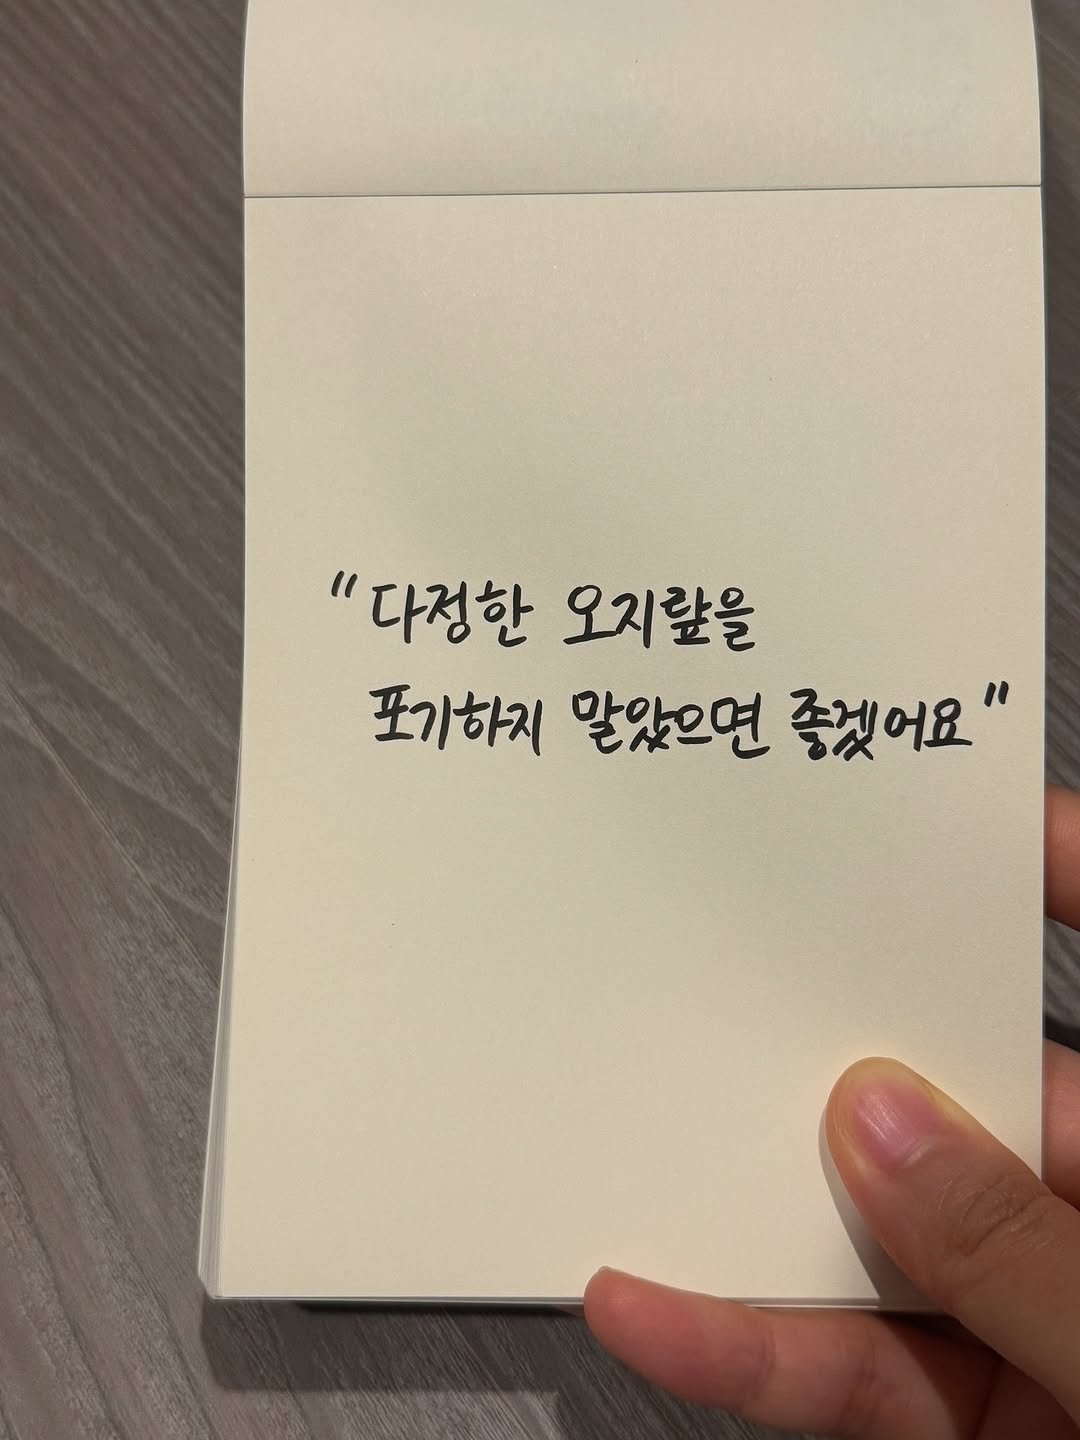 "다정한 오지랖을
포기하지 말았으면 좋겠어요"